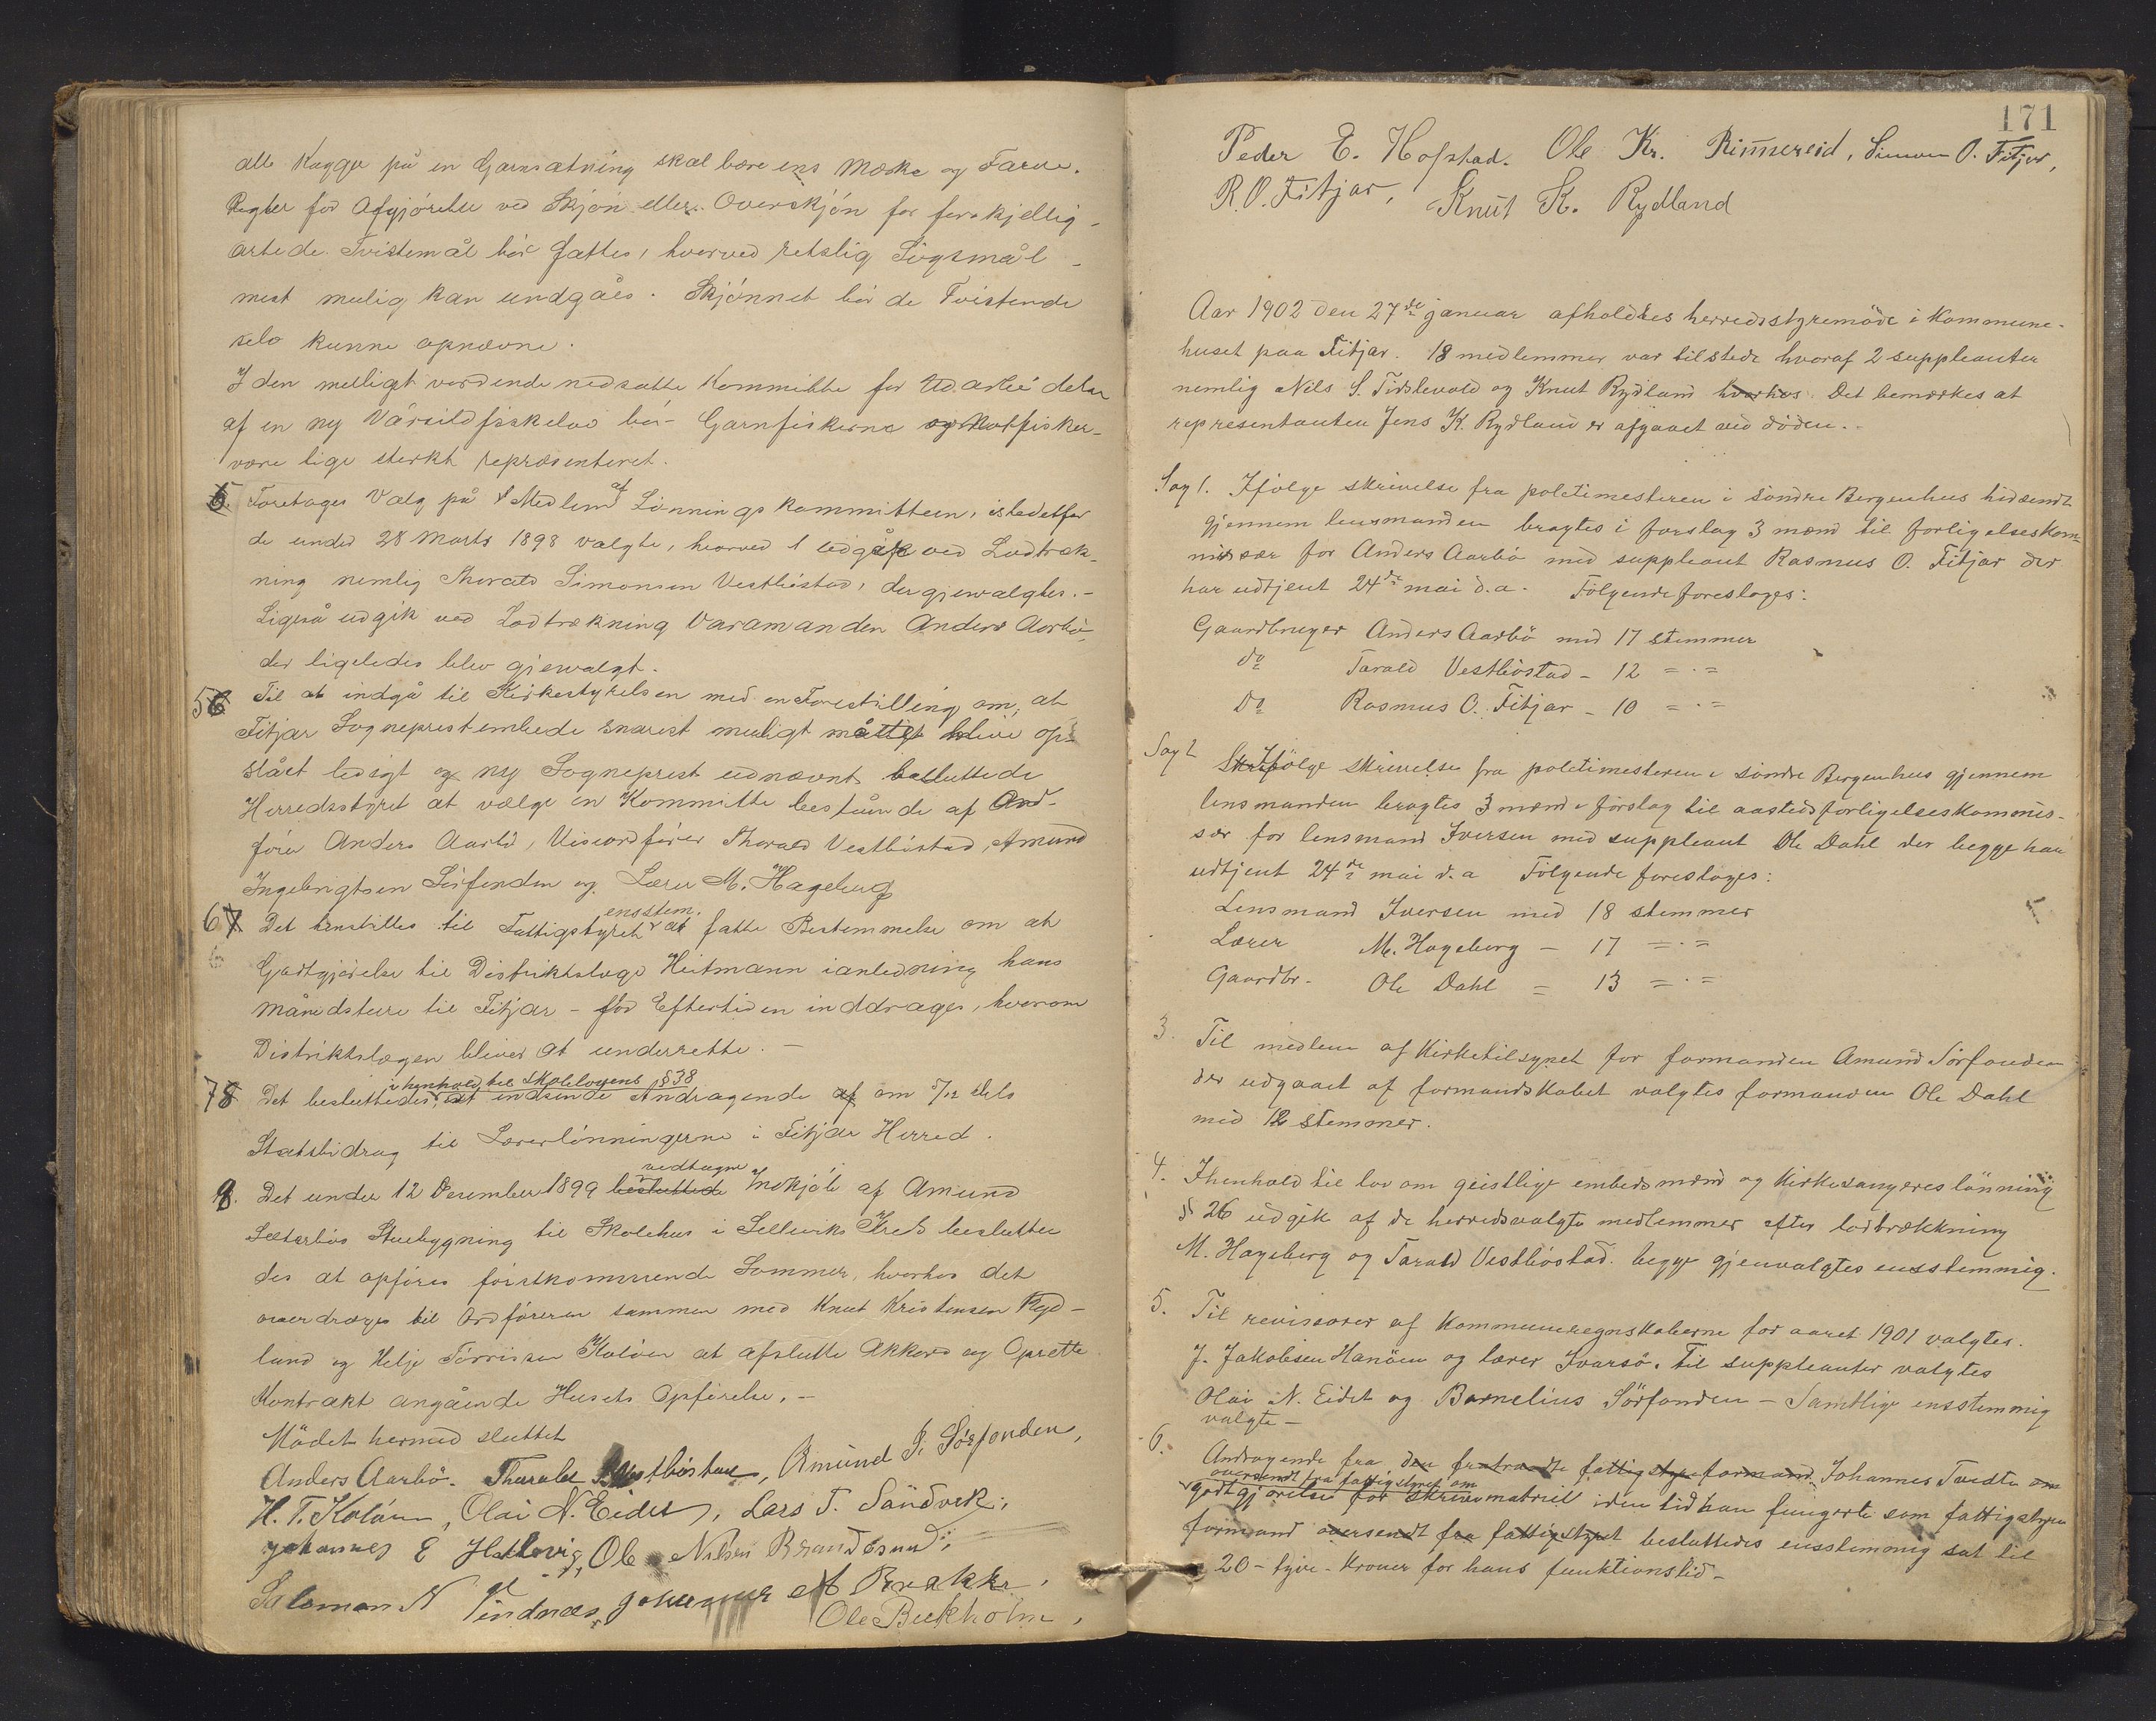 alle Kagger på en Garnsætning skal bære ens Mærke og Farve.
Regler for Afgjörelse ved Skjön eller Overskjön for forskjellig-
artede Tvistemål bör fattes, hvorved retslig Sögsmål
mest mulig kan undgåes. Skjönnet bör de Tvistende
selv kunne opnævne.
I den muligt vordende nedsatte Kommitte for Udarbeidelse
af en ny Vårsildfiskelov bör Garnfiskerne og Notfisker-
være lige sterkt repræsenteret.
5. Foretoges Valg på 1 Medlem af Lönningskommitteen, istedetfor
de under 28 Marts 1898 valgte, hvorved 1 udgik ved Lodtræk-
ning nemlig Thorald Simonsen Vestböstad, der gjenvalgtes.-
Ligeså udgik ved Lodtrækning Varamanden Anders Aarbö
der ligeledes blev gjenvalgt.
56 Til at indgå til Kirkestyrelsen med en Forestilling om, at
Fitjar Sogneprestembede snarest muligt måtte blive op-
slået ledigt og ny Sogneprest udnævnt besluttede
Herredsstyret at vælge en Kommitte bestående af Ord-
förer Anders Aarbö, Viseordförer Thorald Vestböstad, Amund
Ingebrigtsen Sörfonden og Lærer M. Hageberg
67 Det henstilles til Fattigstyret ensstem. at fatte Bestemmelse om at
Godtgjörelse til Distriktslæge Heitmann ianledning hans
månedsture til Fitjar - for Eftertiden inddrages, hvorom
Distriktslægen bliver at underrette. -
78 Det besluttedes, i henhold til Skolelovens § 38 at indsende Andragende af om 5/12 dels
Statsbidrag til Lærerlönningerne i Fitjar Herred.
8. Det under 12 December 1899 besluttede vedtagne Indkjöb af Amund
Sæterbös Stuebygning til Skolehus i Selleviks Kreds beslutte
des at opföres förstkommende Sommer, hvorhos det
overdrages til Ordföreren sammen med Knut Kristensen Ryd-
land og Helje Törrisen Kolöen at afslutte Akkord og Oprette
Kontrakt angående Husets Opförelse. -
Mödet hermed sluttet
Anders Aarbö. Tharald S. Vestböstad, Amund I. Sörfonden,
H. T. Kolöen, Olai N. Eidet, Lars T. Sandvik,
Johannes E Hatlevig, Ole Nilsen Brandösund,
Salomon N Vindnæs, Johannes Brekke,
Ole Bukholm,
171
Peder E. Hofstad. Ole Kr. Rimmereid, Simon O. Fitjar,
R. O. Fitjar, Knut K. Rydland
Aar 1902 den 27de januar afholdtes herredsstyremöde i Kommune-
huset paa Fitjar. 18 medlemmer var tilstede hvoraf 2 suppleanter
nemlig Nils S. Tislevold og Knut Rydland hvorhos Det bemærkes at
representanten Jens K. Rydland er afgaaet ved döden.
Sag 1. Ifölge skrivelse fra politimesteren i söndre Bergenhus hidsendt
gjennem lensmanden bragtes i forslag 3 mænd til forligelseskom-
missær for Anders Aarbö med suppleant Rasmus O. Fitjar der
har udtjent 24de mai d.a. Fölgende foresloges:
Gaardbruger Anders Aarbö med 17 stemmer
do Tarald Vestböstad - 12 = . =
Do Rasmus O. Fitjar - 10 = . =
Sag 2 Ifölge skrivelse fra politimesteren i söndre Bergenhus gjennem
lensmanden bragtes 3 mænd i forslag til aastedsforligelseskommis-
sær for lensmand Iversen med suppleant Ole Dahl der begge har
udtjent 24de mai d.a Fölgende foresloges:
Lensmand Iversen med 18 stemmer
Lærer M. Hageberg - 17 = . =
Gaardbr. Ole Dahl = 13 = . =
3. Til medlem af Kirketilsynet for formanden Amund Sörfonden
der udgaaet af formandskabet valgtes formanden Ole Dahl
med 12 stemmer.
4. Ihenhold til lov om geistlige embedsmænd og Kirkesangeres lönning
§ 26 udgik af de herredsvalgte medlemmer efter lodtrækkning
M. Hageberg og Tarald Vestböstad. begge gjenvalgtes ensstemmig.
5. Til revisorer af Kommuneregnskaberne for aaret 1901 valgtes.
J. Jakobsen Hanöen og lærer Ivarsö. Til suppleanter valgtes
Olai N. Eidet og Barnelius Sörfonden - Samtlige ensstemmig
valgte -
6. Andragende fra den fratraadte fattigstyreformand Johannes Tvedte om
oversendt fra fattigstyret om
godtgjörelse for skrivematriel i den tid han fungerte som fattigstyre
formand oversendt fra fattigstyret besluttedes ensstemmig sat til
20 - tyve - Kroner for hans funktionstid -